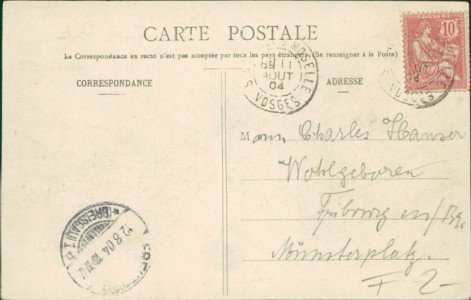 CARTE POSTALE
La Correspondance au recto n'est pas acceptée par tous les pays étrangers. (Se renseigner à la Poste)
CORRESPONDANCE
ADRESSE
MOSELLE
11
AOUT
04
VOSGES
10
Charles Hauser
Wohlgeboren
Fribourg en/Bg.
Münsterplatz
F 2-
(BREISGAU)
12.8.04